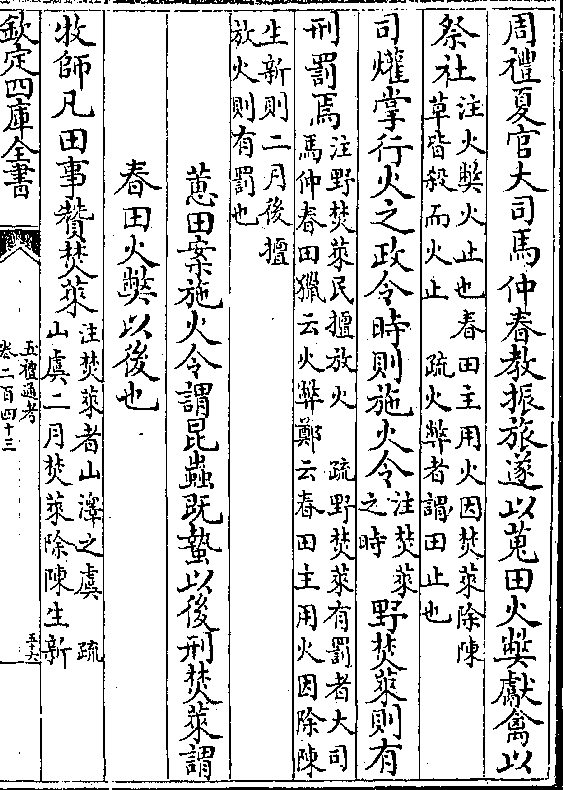 周禮夏官大司馬仲春教振旅遂以蒐田火獘獻禽以
祭社
注火獘火止也春田主用火因焚萊除陳
草皆殺而火止　疏火弊者謂田止也
司爟掌行火之政令時則施火令
注焚萊
之時
野焚萊則有
刑罰焉
注野焚萊民擅放火　疏野焚萊有罰者大司
馬仲春田獵云火弊鄭云春田主用火因除陳
生新則二月後擅
放火則有罰也
蕙田案施火令謂昆蟲既蟄以後刑焚萊謂
春田火獘以後也
牧師凡田事贊焚萊
注焚萊者山澤之虞　疏
山虞二月焚萊除陳生新
欽定四庫全書
五禮通考
卷二百四十三